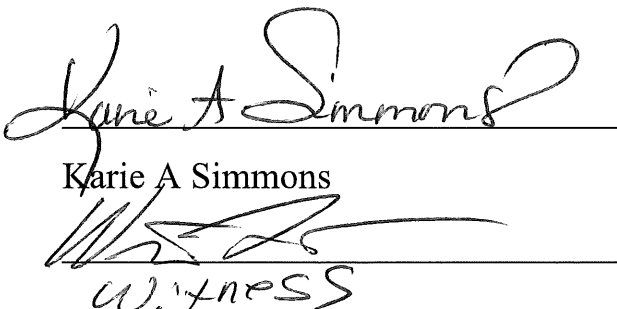 Karie A Simmons
Karie A Simmons
Witness